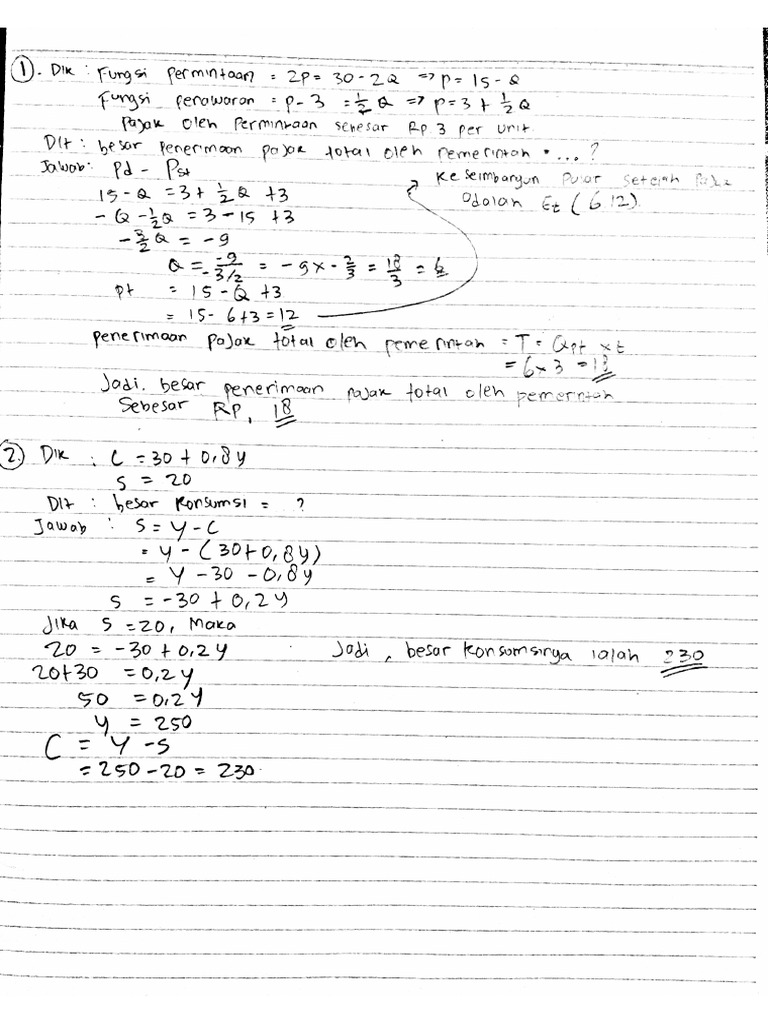 1. Dik : Fungsi permintaan = 2p = 30 - 2Q => p = 15 - Q
Fungsi penawaran = p - 3 = 1/2 Q => p = 3 + 1/2 Q
pajak oleh permintaan sebesar Rp 3 per unit
Dit : besar penerimaan pajak total oleh pemerintah ....?
Jawab : Pd - Pst
15 - Q = 3 + 1/2 Q + 3
- Q - 1/2 Q = 3 - 15 + 3
- 3/2 Q = - 9
Q = -9 / -3/2 = - 9 x - 2/3 = 18/3 = 6
pt = 15 - Q + 3
= 15 - 6 + 3 = 12
Keseimbangan pasar setelah pajak
adalah Et (6.12)
penerimaan pajak total oleh pemerintah = T = Qpt x t
= 6 x 3 = 18
Jadi. besar penerimaan pajak total oleh pemerintah
Sebesar RP, 18
2. Dik : C = 30 + 0,8 y
S = 20
Dit : besar konsumsi = ?
Jawab : S = y - C
= y - (30 + 0,8 y)
= y - 30 - 0,8 y
S = - 30 + 0,2 y
Jika S = 20, Maka
20 = - 30 + 0,2 y
20 + 30 = 0,2 y
50 = 0,2 y
y = 250
C = Y - S
= 250 - 20 = 230
Jadi, besar konsumsinya ialah 230